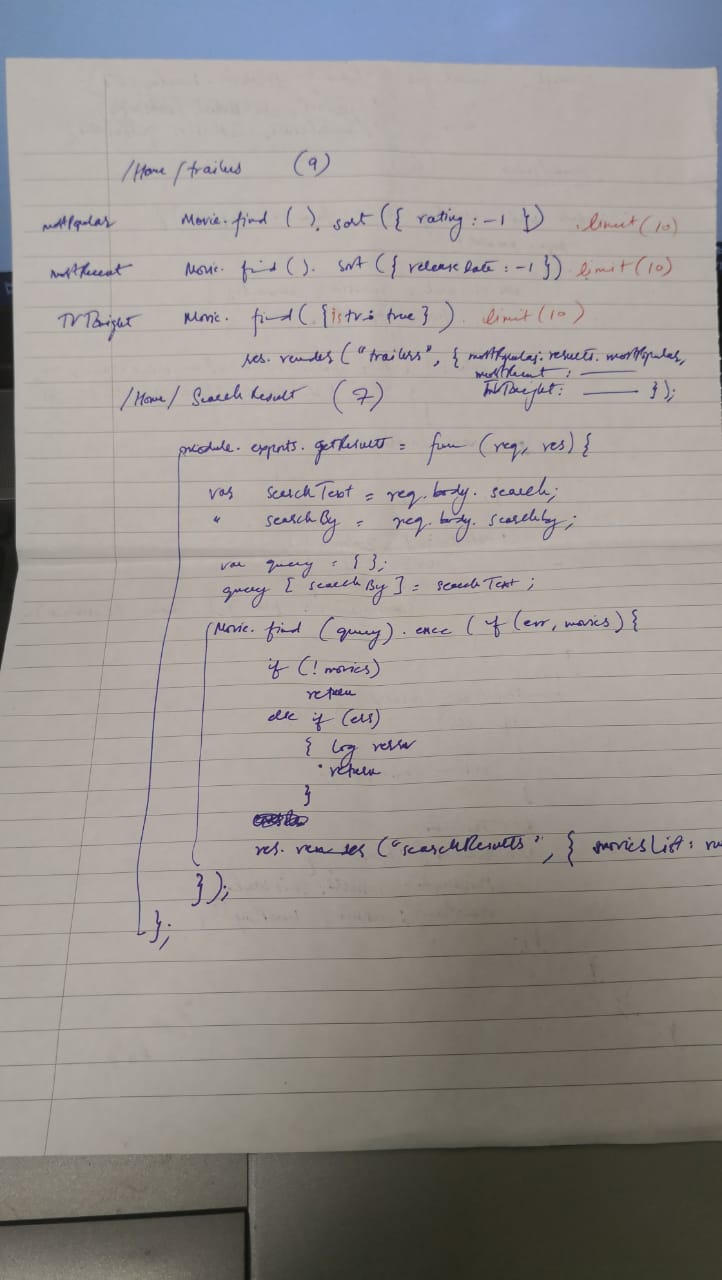 /Home/trailers (9)
mostPopular Movie.find(). sort({ rating: -1 }) .limit(10)
mostRecent Movie.find(). sort({ releaseDate: -1 }) limit(10)
TVTonight Movie. find({istv: true}). limit(10)
res. render("trailers", { mostPopular: results. mostPopular,
mostRecent : ——
/Home/ Search Result (7) TVTonight: —— });
module. exports. getResults = func (req, res) {
var searchText = req. body. search;
" searchBy = req. body. searchby;
var query = { };
query [ searchBy ] = searchText;
Movie. find (query). exec ( f (err, movies) {
if (! movies)
return
else if (err)
{ log
return
}
res. render ("searchResults", { moviesList:
});
};